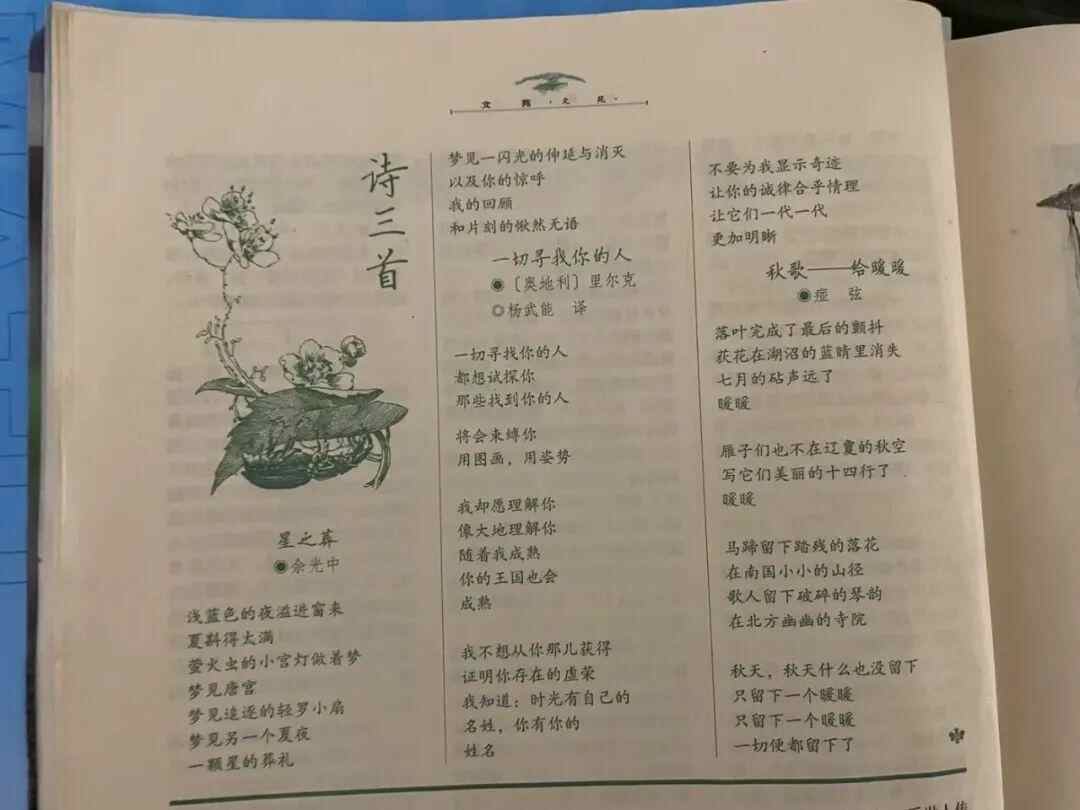 文苑·文苑·
诗三首
星之葬
余光中
浅蓝色的夜溢进窗来
夏斟得太满
萤火虫的小宫灯做着梦
梦见唐宫
梦见追逐的轻罗小扇
梦见另一个夏夜
一颗星的葬礼
梦见一闪光的伸延与消灭
以及你的惊呼
我的回顾
和片刻的愀然无语
一切寻找你的人
〔奥地利〕里尔克
杨武能 译
一切寻找你的人
都想试探你
那些找到你的人
将会束缚你
用图画，用姿势
我却愿理解你
像大地理解你
随着我成熟
你的王国也会
成熟
我不想从你那儿获得
证明你存在的虚荣
我知道：时光有自己的
名姓，你有你的
姓名
不要为我显示奇迹
让你的诫律合乎情理
让它们一代一代
更加明晰
秋歌——给暖暖
痖 弦
落叶完成了最后的颤抖
荻花在湖沼的蓝睛里消失
七月的砧声远了
暖暖
雁子们也不在辽敻的秋空
写它们美丽的十四行了
暖暖
马蹄留下踏残的落花
在南国小小的山径
歌人留下破碎的琴韵
在北方幽幽的寺院
秋天，秋天什么也没留下
只留下一个暖暖
只留下一个暖暖
一切便都留下了